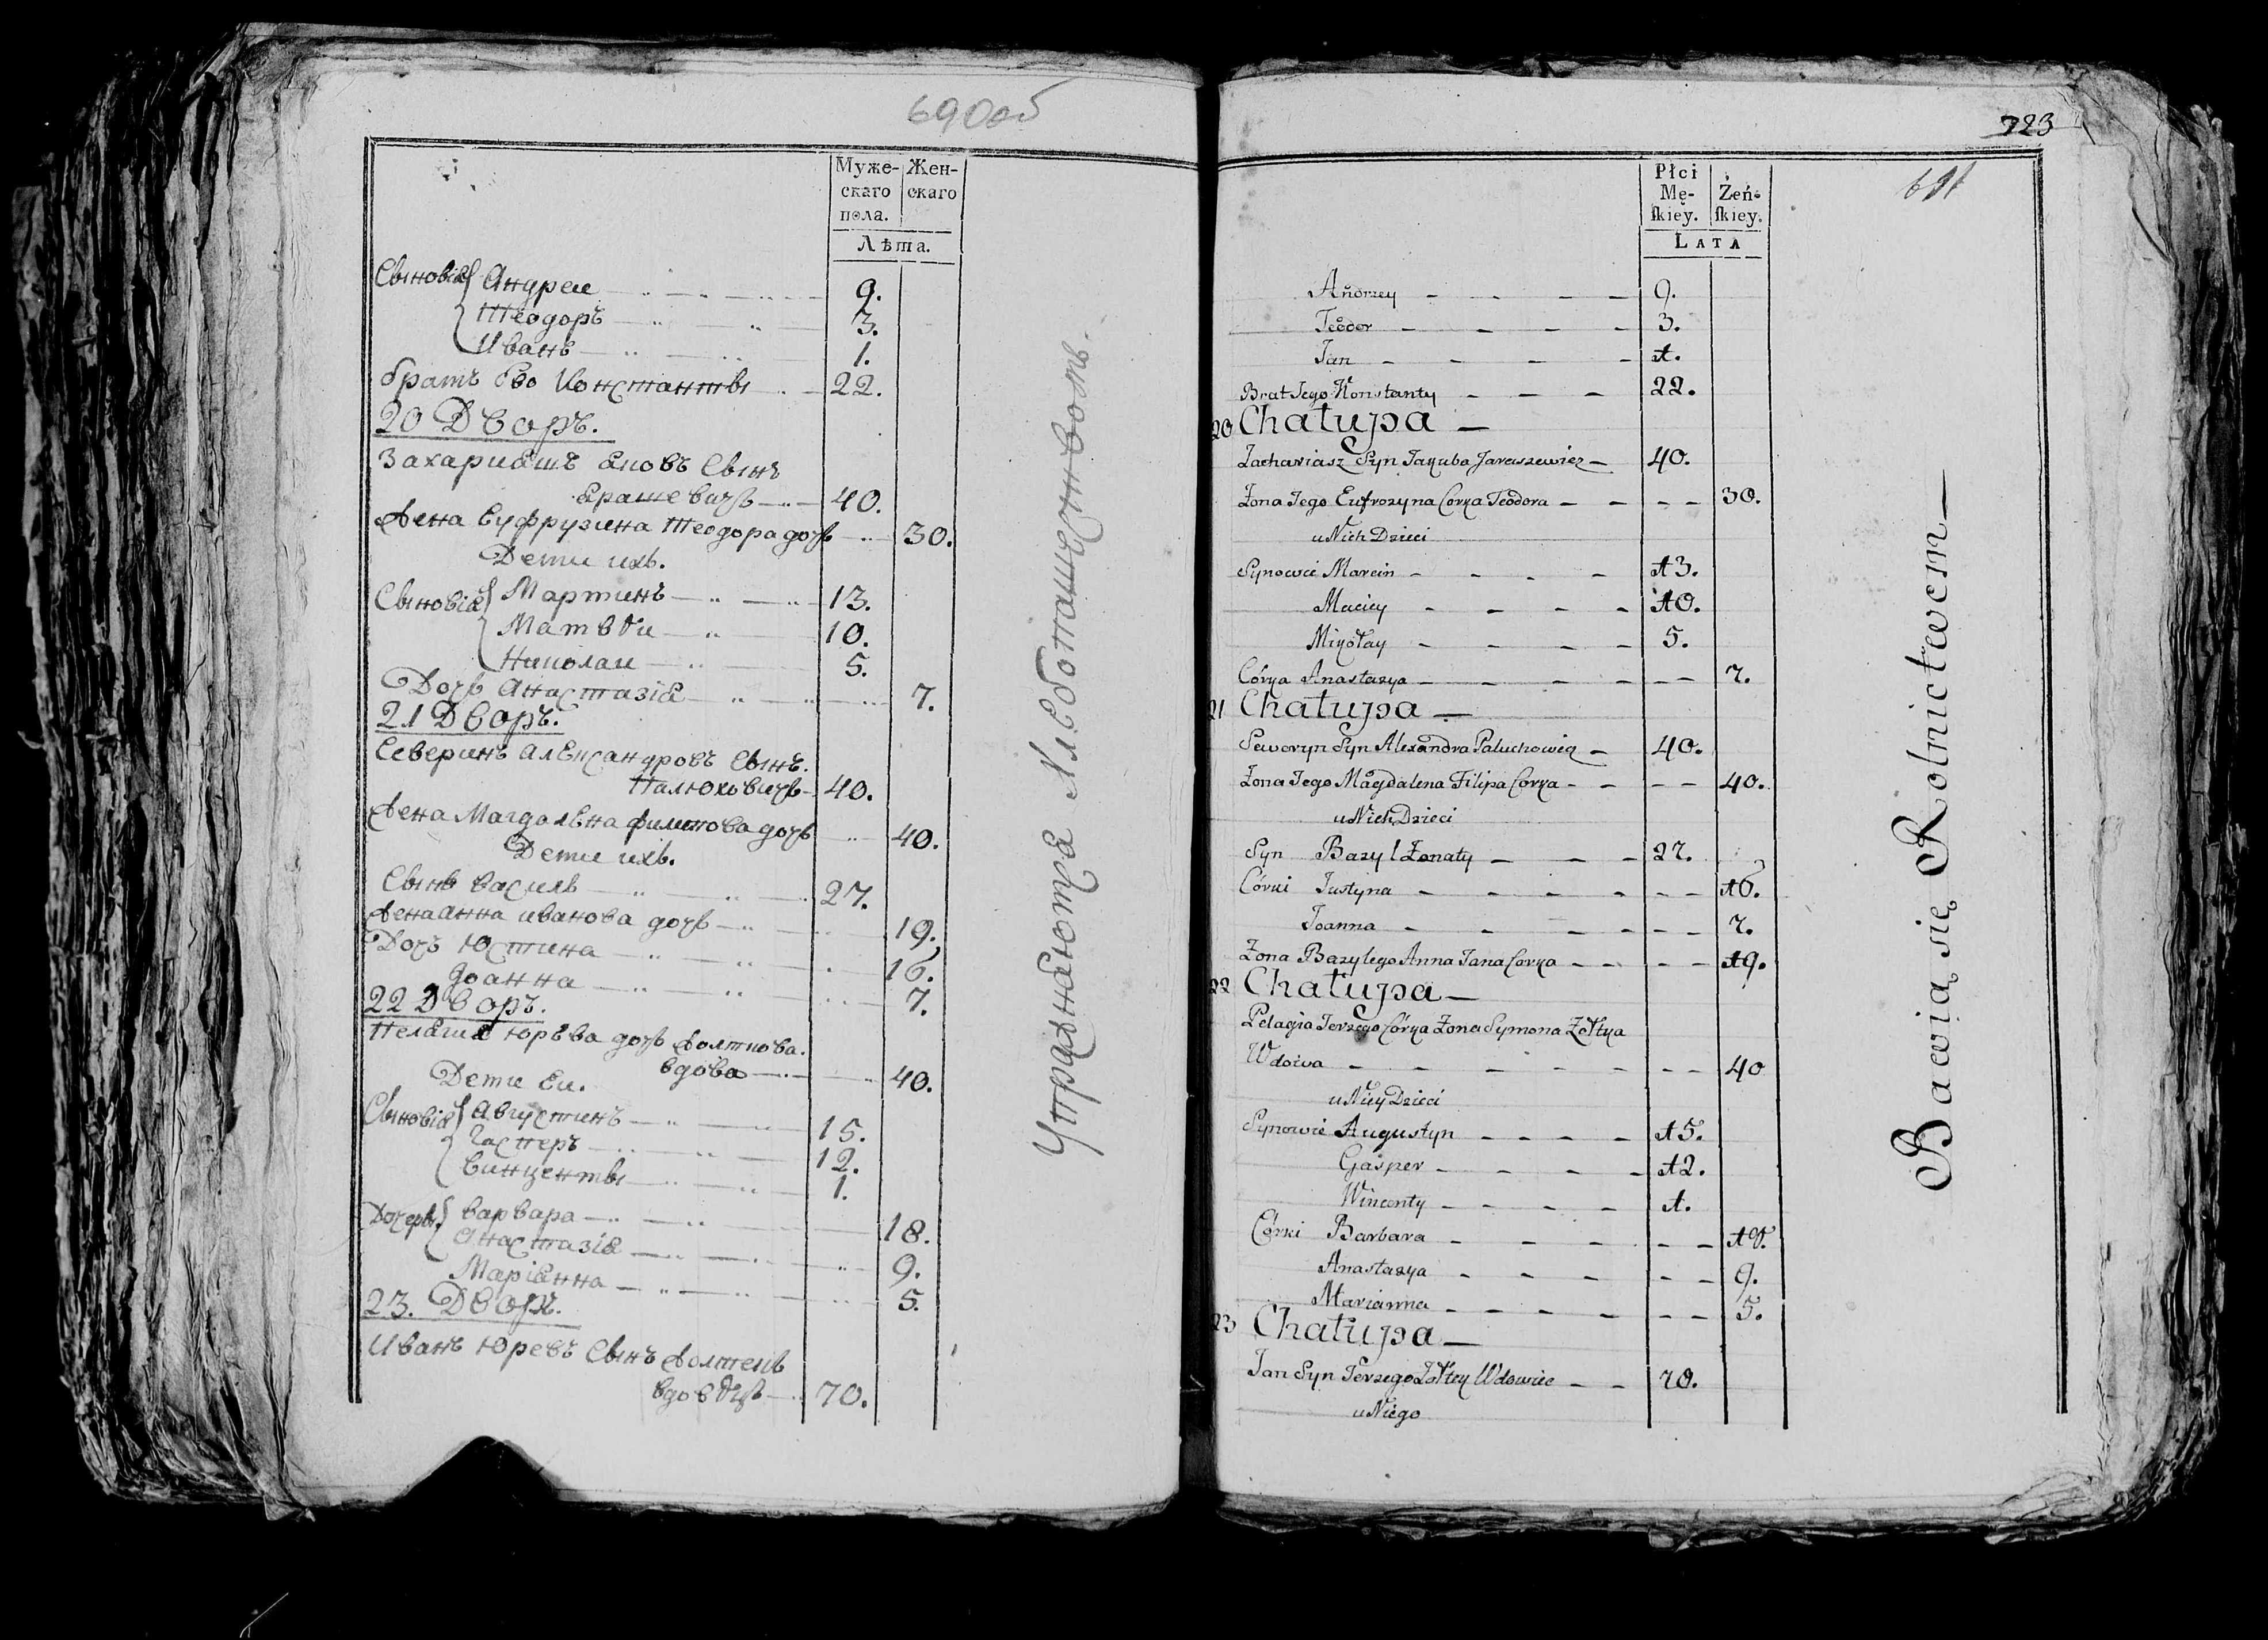 690об
Муже-
скаго
пола.
Жен-
скаго
Лѣта.
Сыновіа Андреи 9.
Теодоръ 3.
Иванъ 1.
братъ Его Константы 22.
20 Дворъ.
Захариашъ Яковъ Сынъ
Ярашевичь 40.
Жена Еуфрузина Теодора дочь 30.
Дети ихъ.
Сыновіа Мартинъ 13.
Матвѣи 10.
Николаи 5.
Дочь Анастазіа 7.
21 Дворъ.
Северинъ Александровъ Сынъ.
Палюховичь 40.
Жена Магдалѣна филипова дочь 40.
Дети ихъ.
Сынъ Василь 27.
Жена Анна иванова дочь 19.
Дочь Юстина 16.
Іоанна 7.
22 Дворъ.
Пелагиа Юрьва дочь Жолткова.
вдова 40.
Дети Еи.
Сыновіа Августинъ 15.
Гасперъ 12.
Винценты 1.
Дочерѣ Варвара 18.
Анастазіа 9.
Маріанна 5.
23. Дворъ.
Иванъ Юревъ Сынъ Жолтекъ
вдовѣць 70.
Упражнаютса Хлѣбопашественвомъ.
723
691
Płci
Mę-
ſkiey.
Żeń-
ſkiey.
LATA
Andrzey 9.
Teodor 3.
Jan 1.
Brat Jego Konstanty 22.
20 Chałupa
Zachariasz Syn Jakuba Jaraszewicz 40.
Żona Jego Eufrozyna Corka Teodora 30.
u Nich Dzieci
Synowie Marcin 13.
Maciey 10.
Mikołay 5.
Córka Anastazya 7.
21 Chałupa
Seweryn Syn Alexandra Paluchowicz 40.
Żona Jego Magdalena Filipa Corka 40.
u Nich Dzieci
Syn Bazyl Żonaty 27.
Córki Justyna 16.
Joanna 7.
Żona Bazylego Anna Jana Corka 19.
22 Chałupa
Pelagia Jerzego Córka Żona Symona Żołtka
Wdowa 40
u Niey Dzieci
Synowie Augustyn 15.
Gasper 12.
Wincenty 1.
Córki Barbara 18.
Anastazya 9.
Marianna 5.
23 Chałupa
Jan Syn Jerzego Żołtey Wdowiec 70.
u Niego
Bawią się Rolnictwem